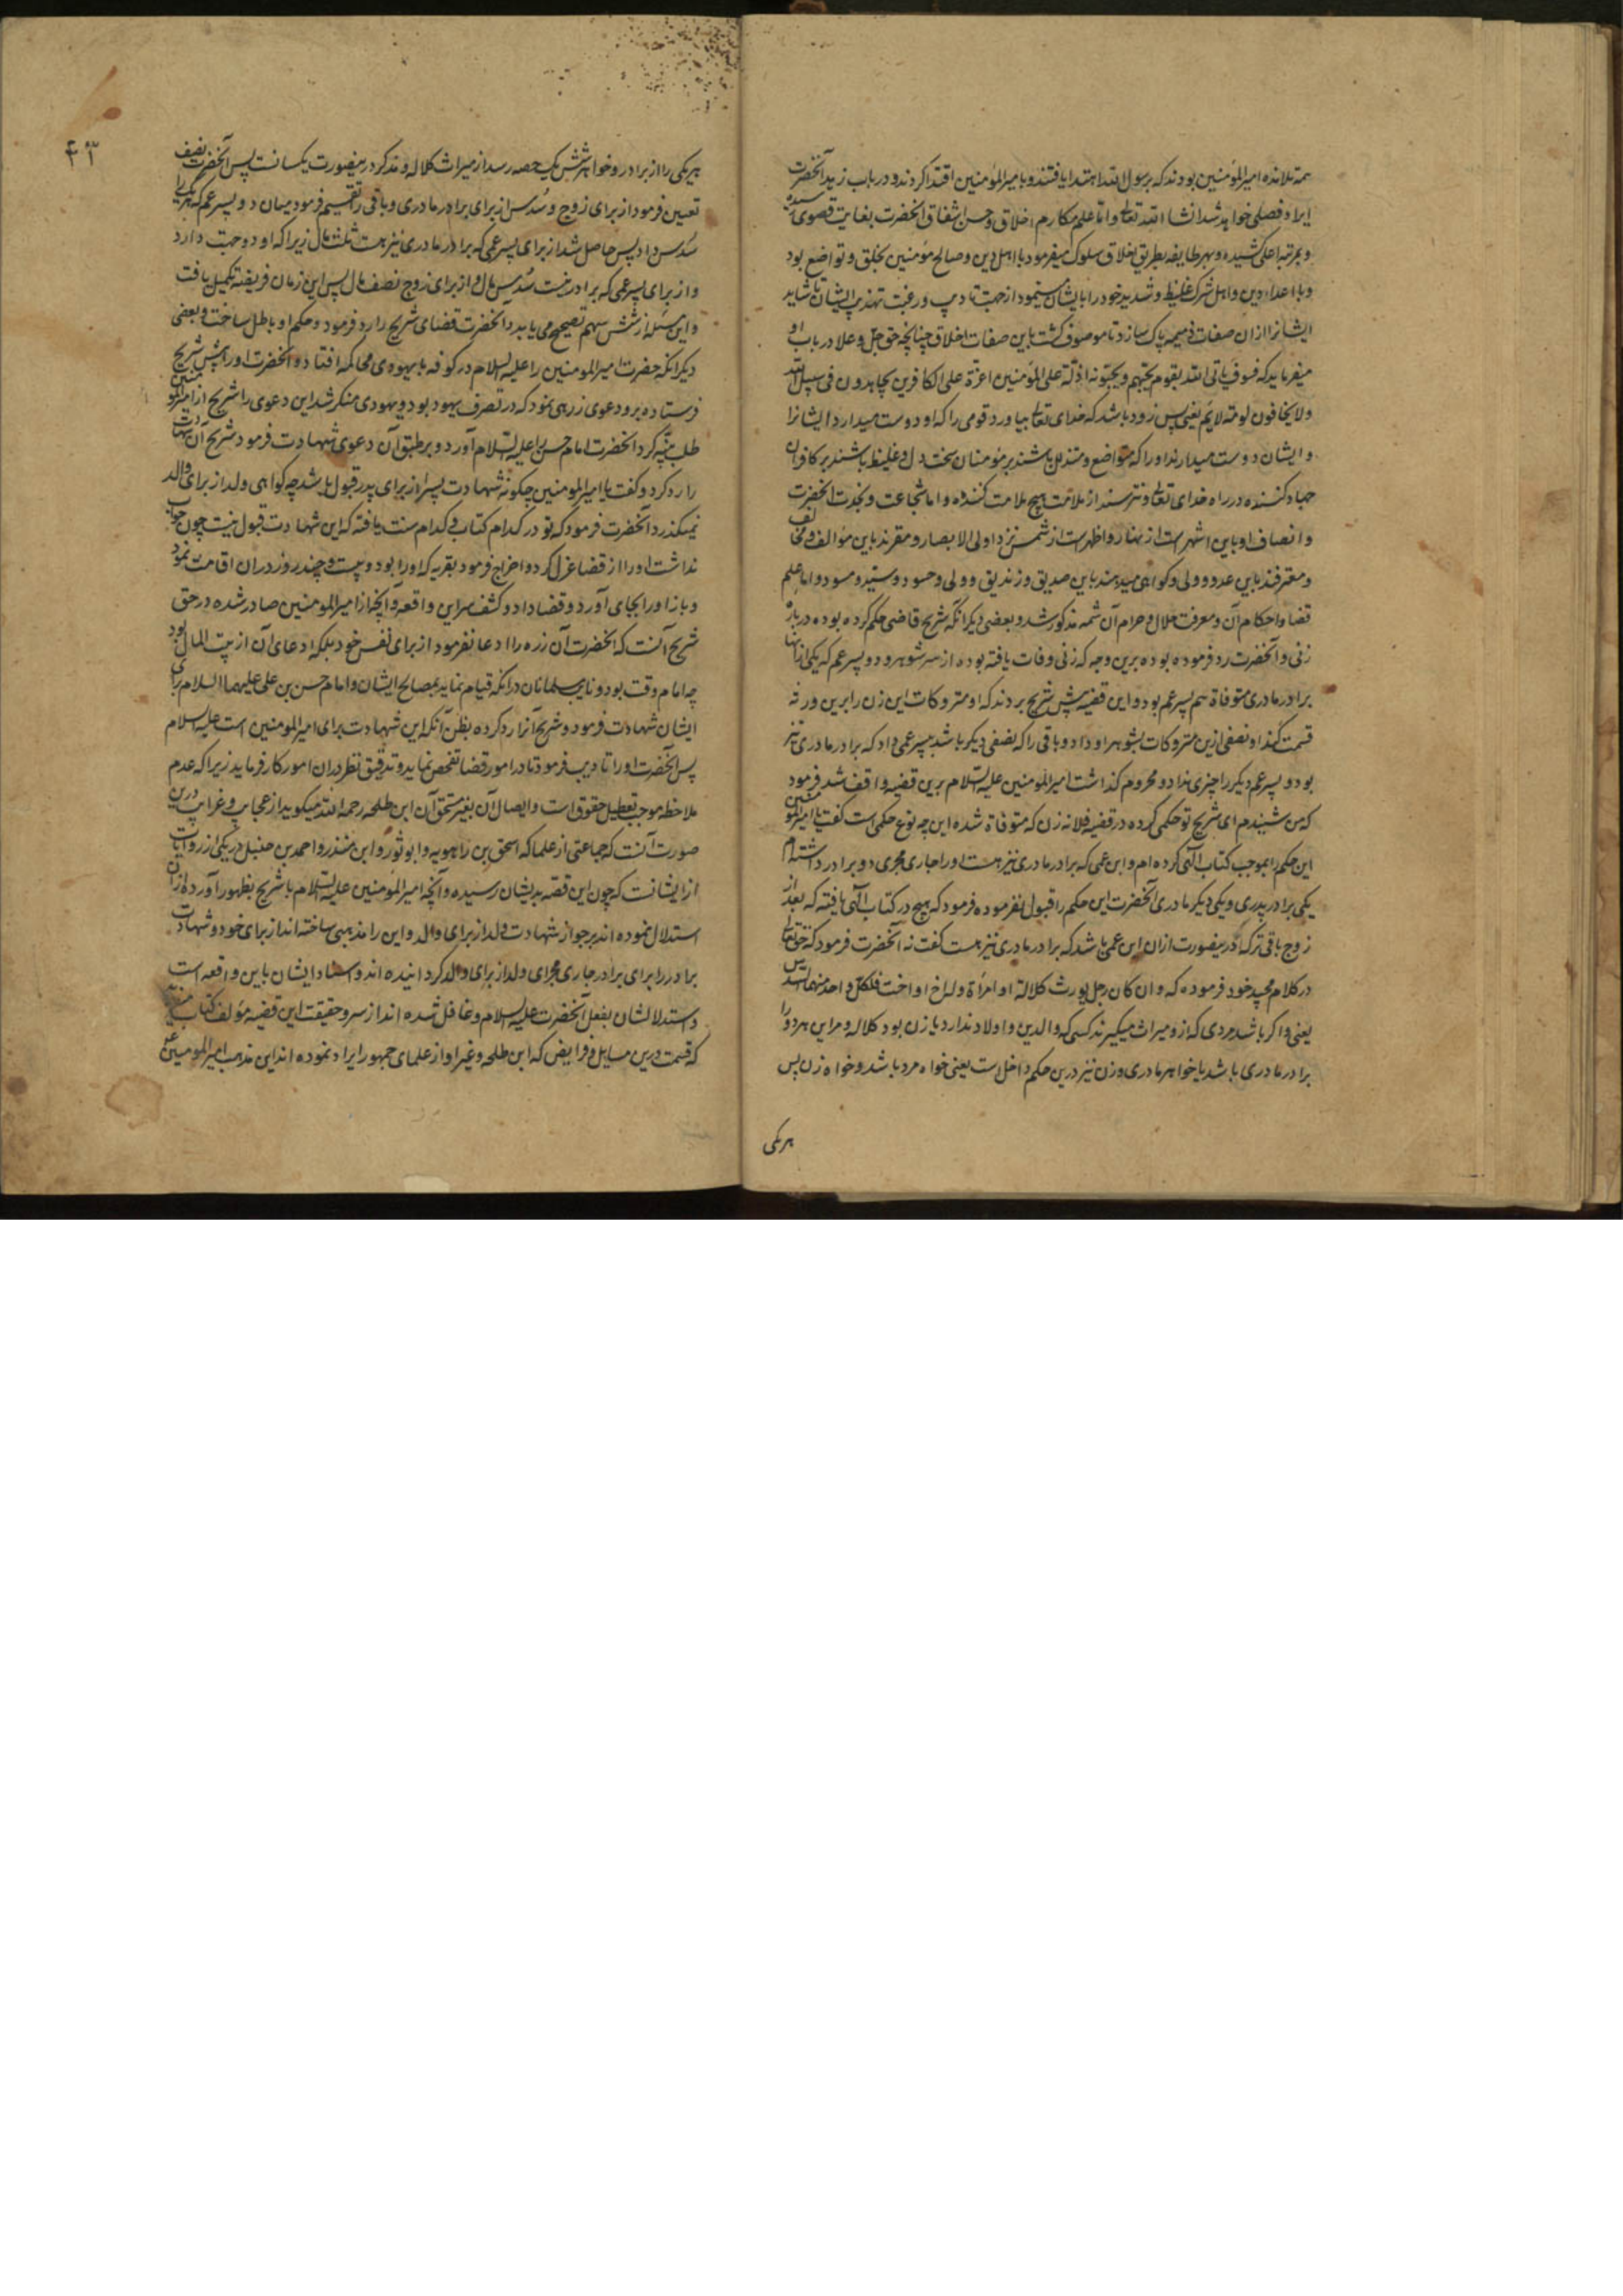 همه تلامذه امیرالمؤمنین بودند که برسول الله اهتدا یافتند و بامیرالمؤمنین اقتدا کردند و در باب زهد آنحضرت
ایراد فصلی خواهد شد انشا الله تعالی و اما علم مکارم اخلاق و حسن اشفاق آنحضرت بغایت قصوی رسیده
و بمرتبه اعلی کشیده و بهر طایفه بطریق اخلاق سلوک میفرمود با اهل دین و صالح مؤمنین بخلق و تواضع بود
و با اعداء دین و اهل شرک غلیظ و شدید خود را بایشان مینمود از جهت تادیب و رغبت تهذیب ایشان تا شاید
ایشانرا ازان صفات ذمیمه پاک سازد تا موصوف گشت باین صفات اخلاق چنانچه حق جل و علا در باب او
میفرماید که فسوف یاتی الله بقوم یحبهم و یحبونه اذلة علی المؤمنین اعزة علی الکافرین یجاهدون فی سبیل الله
ولا یخافون لومة لایم یعنی پس زود باشد که خدای تعالی بیاورد قومی را که او دوست میدارد ایشانرا
و ایشان دوست میدارند او را که متواضع و متذلل باشند بر مؤمنان سخت دل و غلیظ باشند بر کافران
جهاد کننده در راه خدای تعالی و نترسند از ملامت هیچ ملامت کننده و اما شجاعت و نجدت آنحضرت
و انصاف او باین اشهر است از نهار و اظهر است از شمس نزد اولی الابصار و مقرند باین مؤالف و مخالف
و معترفند باین عدو و ولی و گواهی میدهند باین صدیق و زندیق و ولی و حسود و سید و مسود و اما علم
قضا و احکام آن و معرفت حلال و حرام آن شمه مذکور شد و بعضی دیگر آنکه شریح قاضی حکم کرده بوده در باره
زنی و آنحضرت رد فرموده بوده برین وجه که زنی وفات یافته بوده از سر شوهر و دو پسر عم که یکی ازینها
برادر مادری متوفاة هم پسر عم بود و این قضیه پیش شریح بردند که او متروکات این زن را برین ورثه
قسمت کند او نصفی ازین متروکات بشوهر او داد و باقی را که نصفی دیگر باشد بپسر عمی داد که برادر مادری نیز
بود و پسر عم دیگر را چیزی نداد و محروم گذاشت امیرالمومنین علیه السلام برین قضیه واقف شد فرمود
که من شنیدم ای شریح تو حکمی کرده در قضیه فلانه زن که متوفاة شده این چه نوع حکمی است گفت یا امیرالمؤمنین
این حکم را بموجب کتاب الهی کرده ام و ابن عمی که برادر مادری نیز هست او را جاری مجری دو برادر داشته ام
یکی برادر پدری و یکی دیگر مادری آنحضرت این حکم را قبول نفرموده فرمود که هیچ در کتاب الهی یافته که بعد از
زوج باقی ترکه در ینصورت ازان ابن عمی باشد که برادر مادری نیز هست گفت نه آنحضرت فرمود که حق تعالی
در کلام مجید خود فرموده که و ان کان رجل یورث کلالة او امرأة وله اخ او اخت فلکل واحد منهما السدس
یعنی و اگر باشد مردی که ازو میراث میگیرند کسی که والدین و اولاد ندارد یا زن بود کلاله و مر این هر دو را
برادر مادری باشد یا خواهر مادری و زن نیز درین حکم داخل است یعنی خواه مرد باشد و خواه زن پس
هر یکی
۴۳
هر یکی را از برادر و خواهر شش یک حصه رسد از میراث کلاله و مذکر درینصورت یکسانست پس آنحضرت نصف
تعیین فرمود از برای زوج و سدس از برای برادر مادری و باقی را تقسیم فرمود میان دو پسر عم که هر یکی را
سدس داد پس حاصل شد از برای پسر عمی که برادر مادری نیز هست ثلث مال زیرا که او دو جهت دارد
و از برای پسر عمی که برادر نیست سدس مال و از برای زوج نصف مال پس این زمان فریضه تکمیل یافت
و این مسئله از شش سهم تصحیح می یابد و آنحضرت قضای شریح را رد فرمود و حکم او باطل ساخت و بعضی
دیگر آنکه حضرت امیرالمومنین را علیه السلام در کوفه با یهودی محاکمه افتاد و آنحضرت او را پیش شریح
فرستاده برو دعوی زرهی نمود که در تصرف یهود بود و یهودی منکر شد این دعوی را شریح از امیرالمؤمنین
طلب بینه کرد آنحضرت امام حسن را علیه السلام آورد و بر طبق آن دعوی شهادت فرمود شریح آن شهادت
را رد کرد و گفت یا امیرالمومنین چگونه شهادت پسر از برای پدر قبول باشد چه گواهی ولد از برای والد
نمیگذرد آنحضرت فرمود که تو در کدام کتاب و کدام سنت یافته که این شهادت قبول نیست چون جواب
نداشت او را از قضا عزل کرد و اخراج فرمود بقریه که او را بود و بیست و چند روز دران اقامت نمود
و باز او را بجای آورد و قضا داد و کشف سر این واقعه و آنچه از امیرالمومنین صادر شده در حق
شریح آنست که آنحضرت آن زره را ادعا نفرمود از برای نفس خود بلکه ادعای آن از بیت المال بود
چه امام وقت بود و نایب مسلمانان در آنکه قیام نماید بمصالح ایشان و امام حسن بن علی علیهما السلام برای
ایشان شهادت فرمود و شریح آنرا رد کرده بظن آنکه این شهادت برای امیرالمومنین است علیه السلام
پس آنحضرت او را تادیب فرمود تا در امور قضا تفحص نماید و تدقیق نظر دران امور کار فرماید زیرا که عدم
ملاحظه موجب تعطیل حقوق است و ایصال آن بغیر مستحق آن ابن طلحه رحمه الله میگوید از عجایب و غرایب درین
صورت آنست که جماعتی از علما که اسحق بن راهویه و ابو ثور و ابن منذر و احمد بن حنبل در یکی از روایات
از ایشانست که چون این قصه بدیشان رسیده و آنچه امیرالمومنین علیه السلام با شریح بظهور آورده ازان
استدلال نموده اند بر جواز شهادت ولد از برای والد و این را مذهبی ساخته اند از برای خود و شهادت
برادر را برای برادر جاری مجرای ولد از برای والد گردانیده اند و اسناد ایشان باین واقعه است
و استدلالشان بفعل آنحضرت علیه السلام و غافل شده اند از سر و حقیقت این قضیه مؤلف کتاب
که قسمت درین مسایل و فرایض که ابن طلحه و غیر او از علمای جمهور ایراد نموده اند این مذهب امیرالمومنین